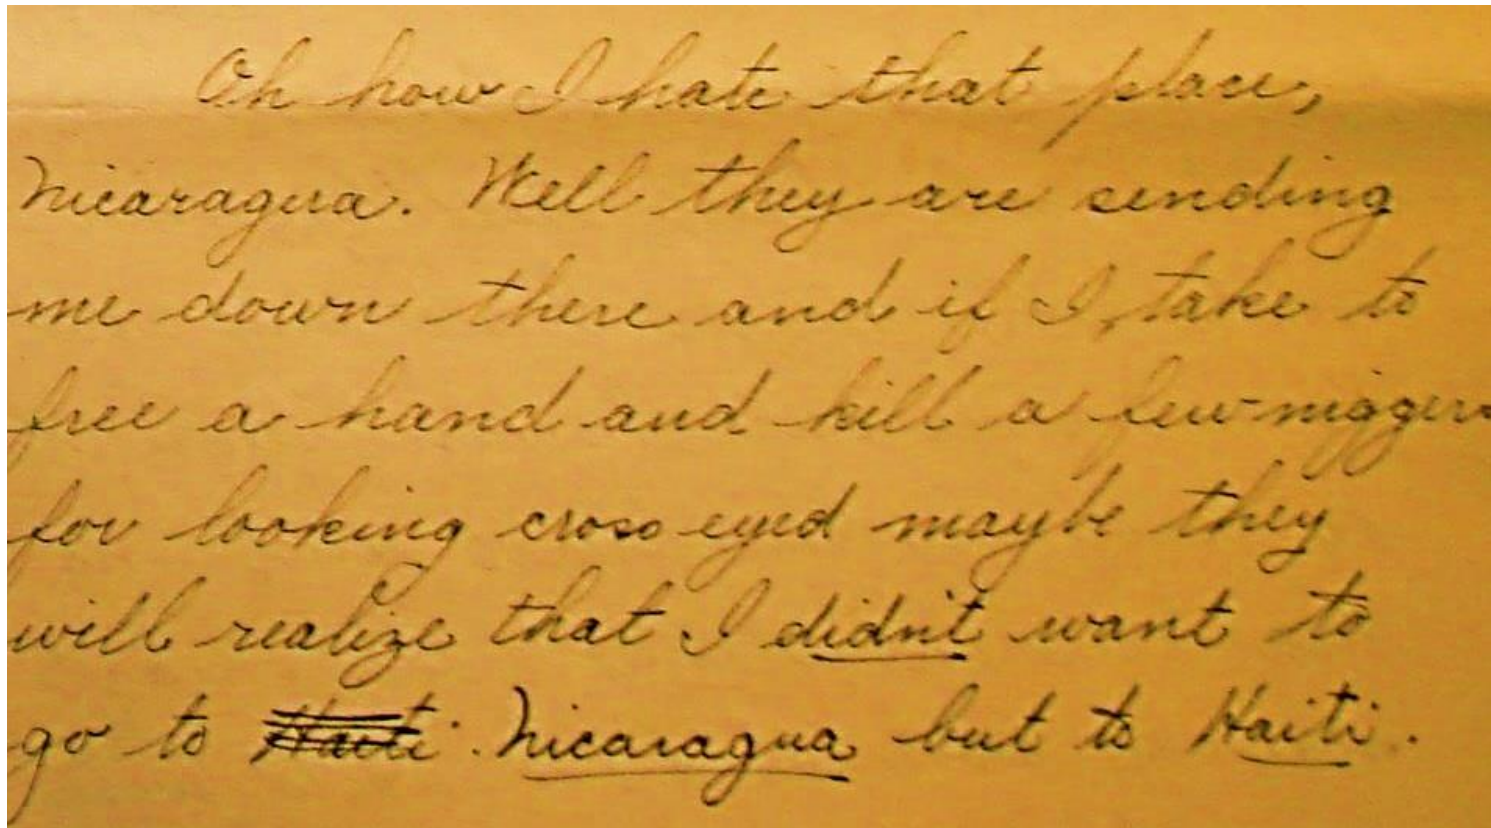 Oh how I hate that place,
Nicaragua. Well they are sending
me down there and if I take to
free a hand and kill a few niggers
for looking cross eyed maybe they
will realize that I didn't want to
go to Haiti. Nicaragua but to Haiti.